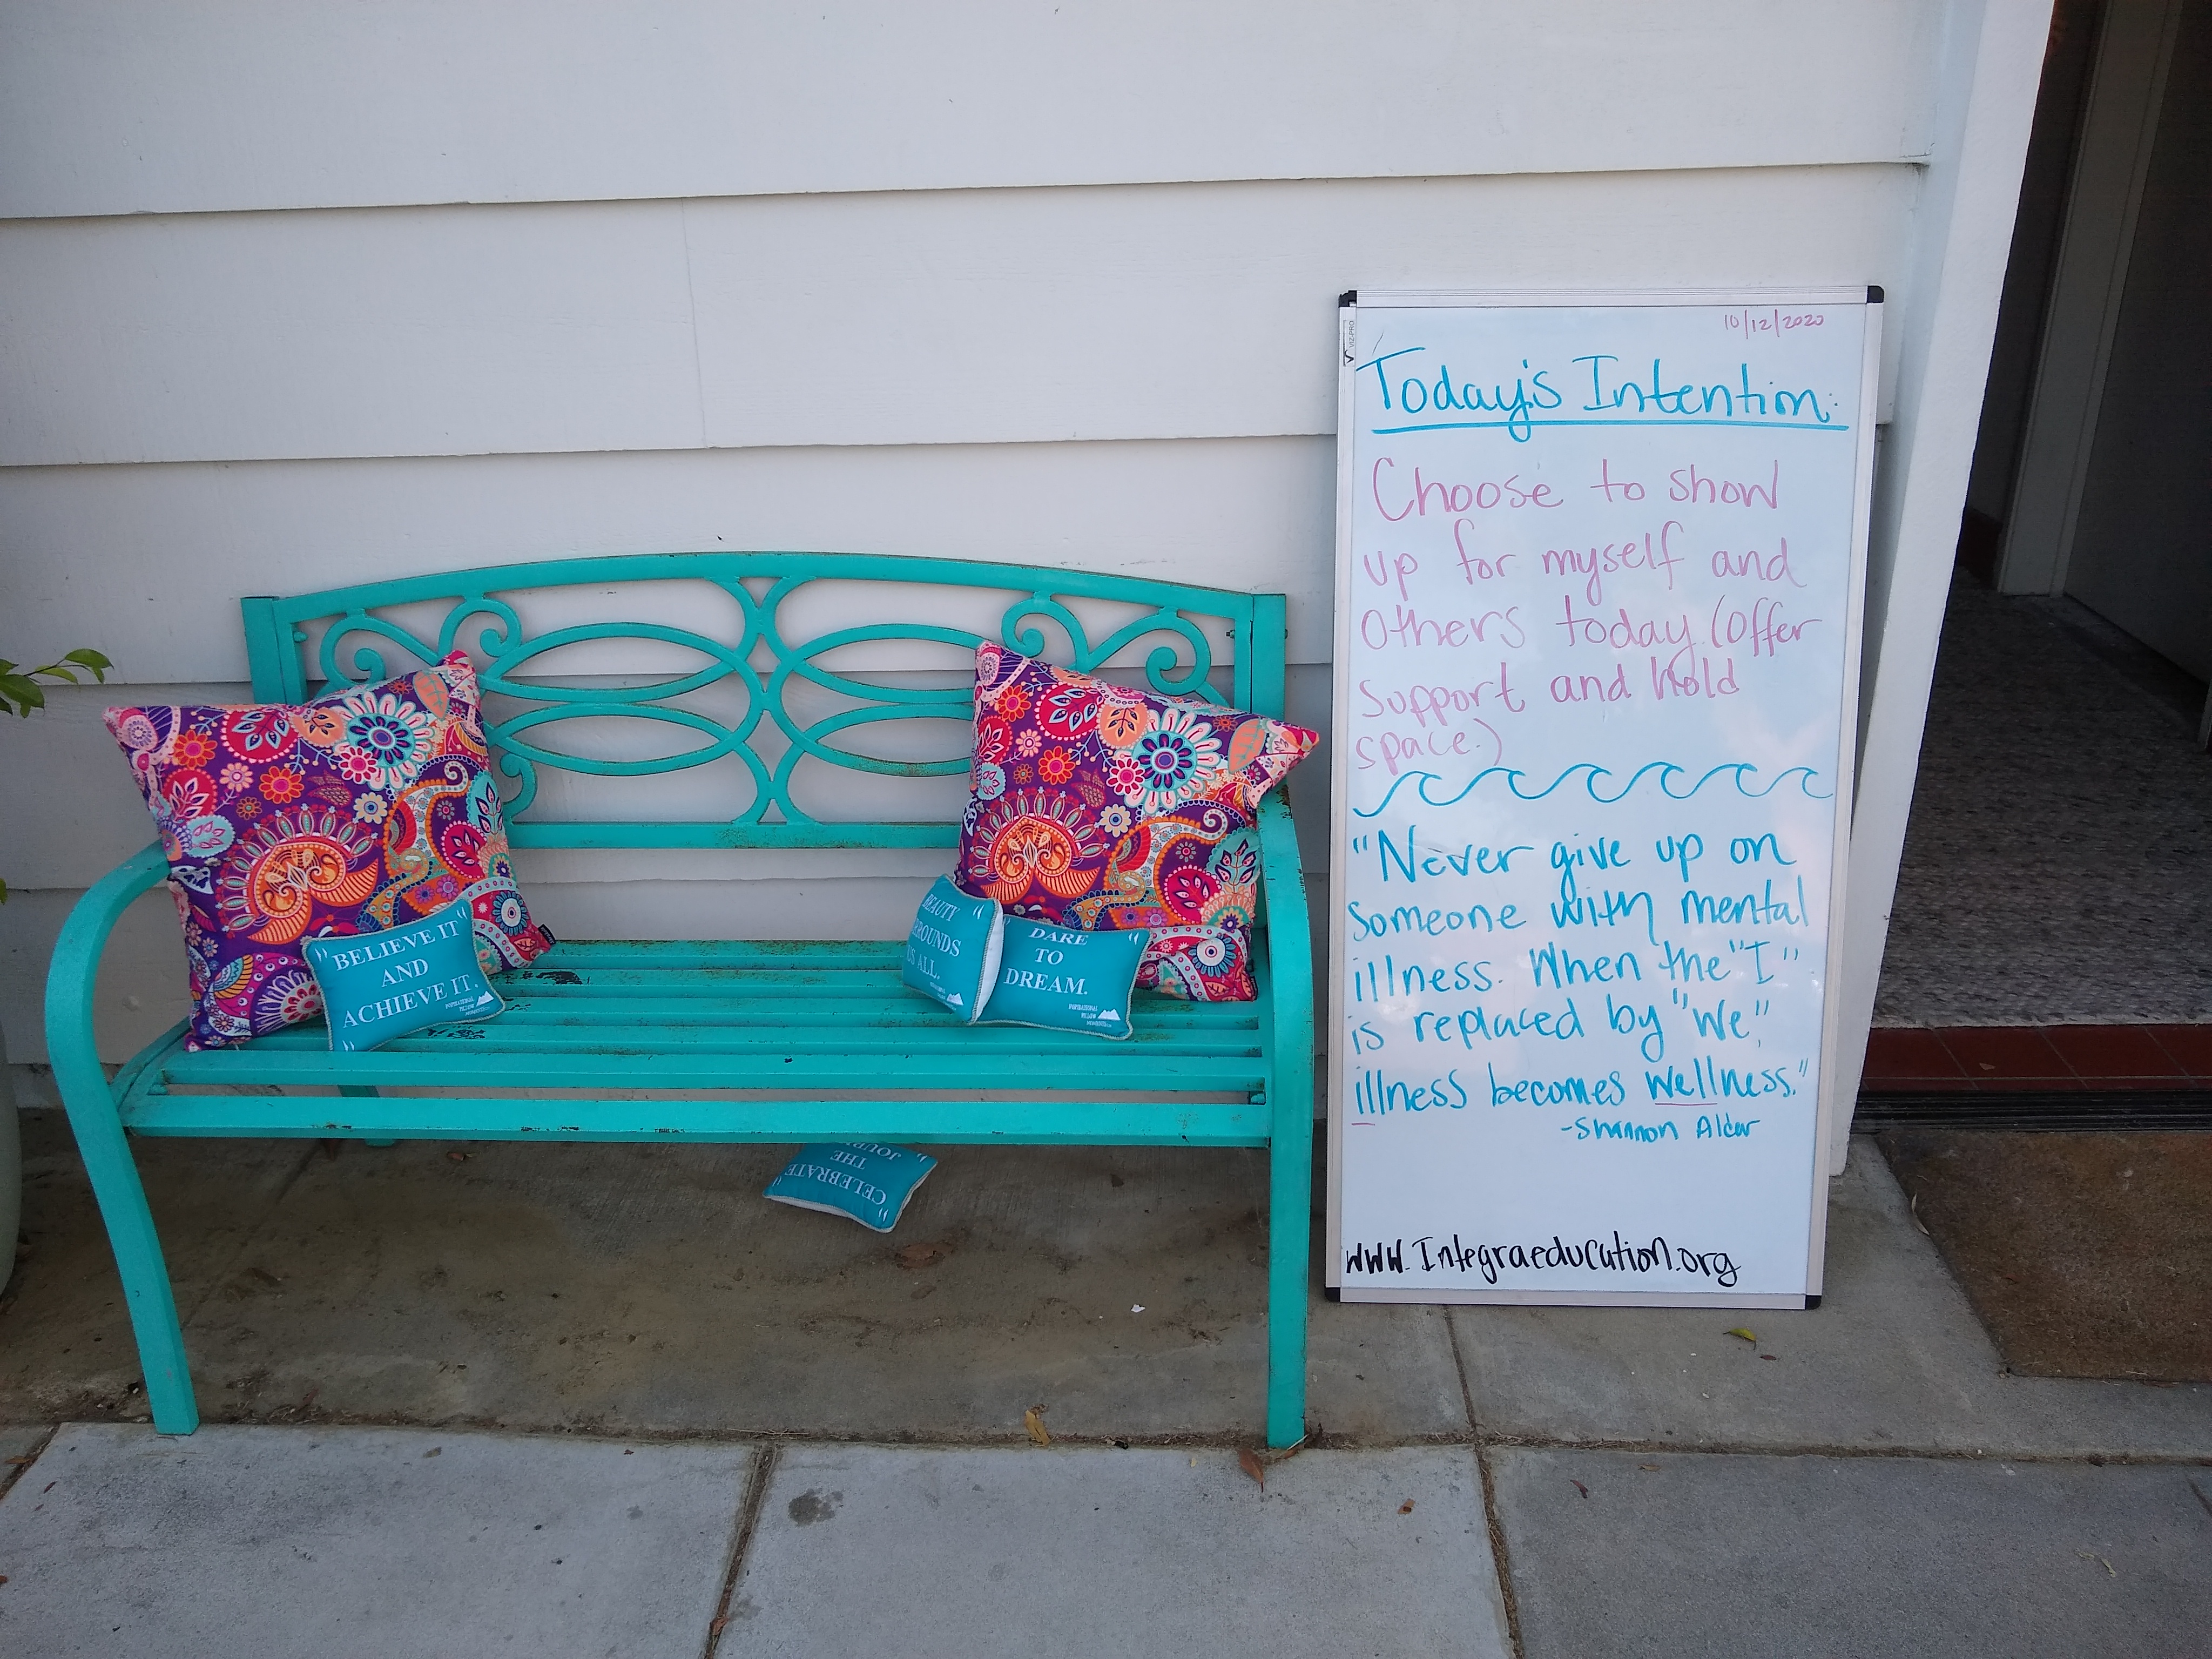 10/12/2020
VIZ-PRO
Today's Intention:
Choose to show
up for myself and
Others today (Offer
support and hold
space.)
"Never give up on
someone with mental
illness. When the "I"
is replaced by "We",
illness becomes wellness."
-Shannon Alder
www.Integraeducation.org
"BELIEVE IT
AND
ACHIEVE IT.
"
INSPIRATIONAL
PILLOW
BEAUTY
US ALL.
"
DARE
TO
DREAM.
INSPIRATIONAL
PILLOW
"
CELEBRATE
THE
"